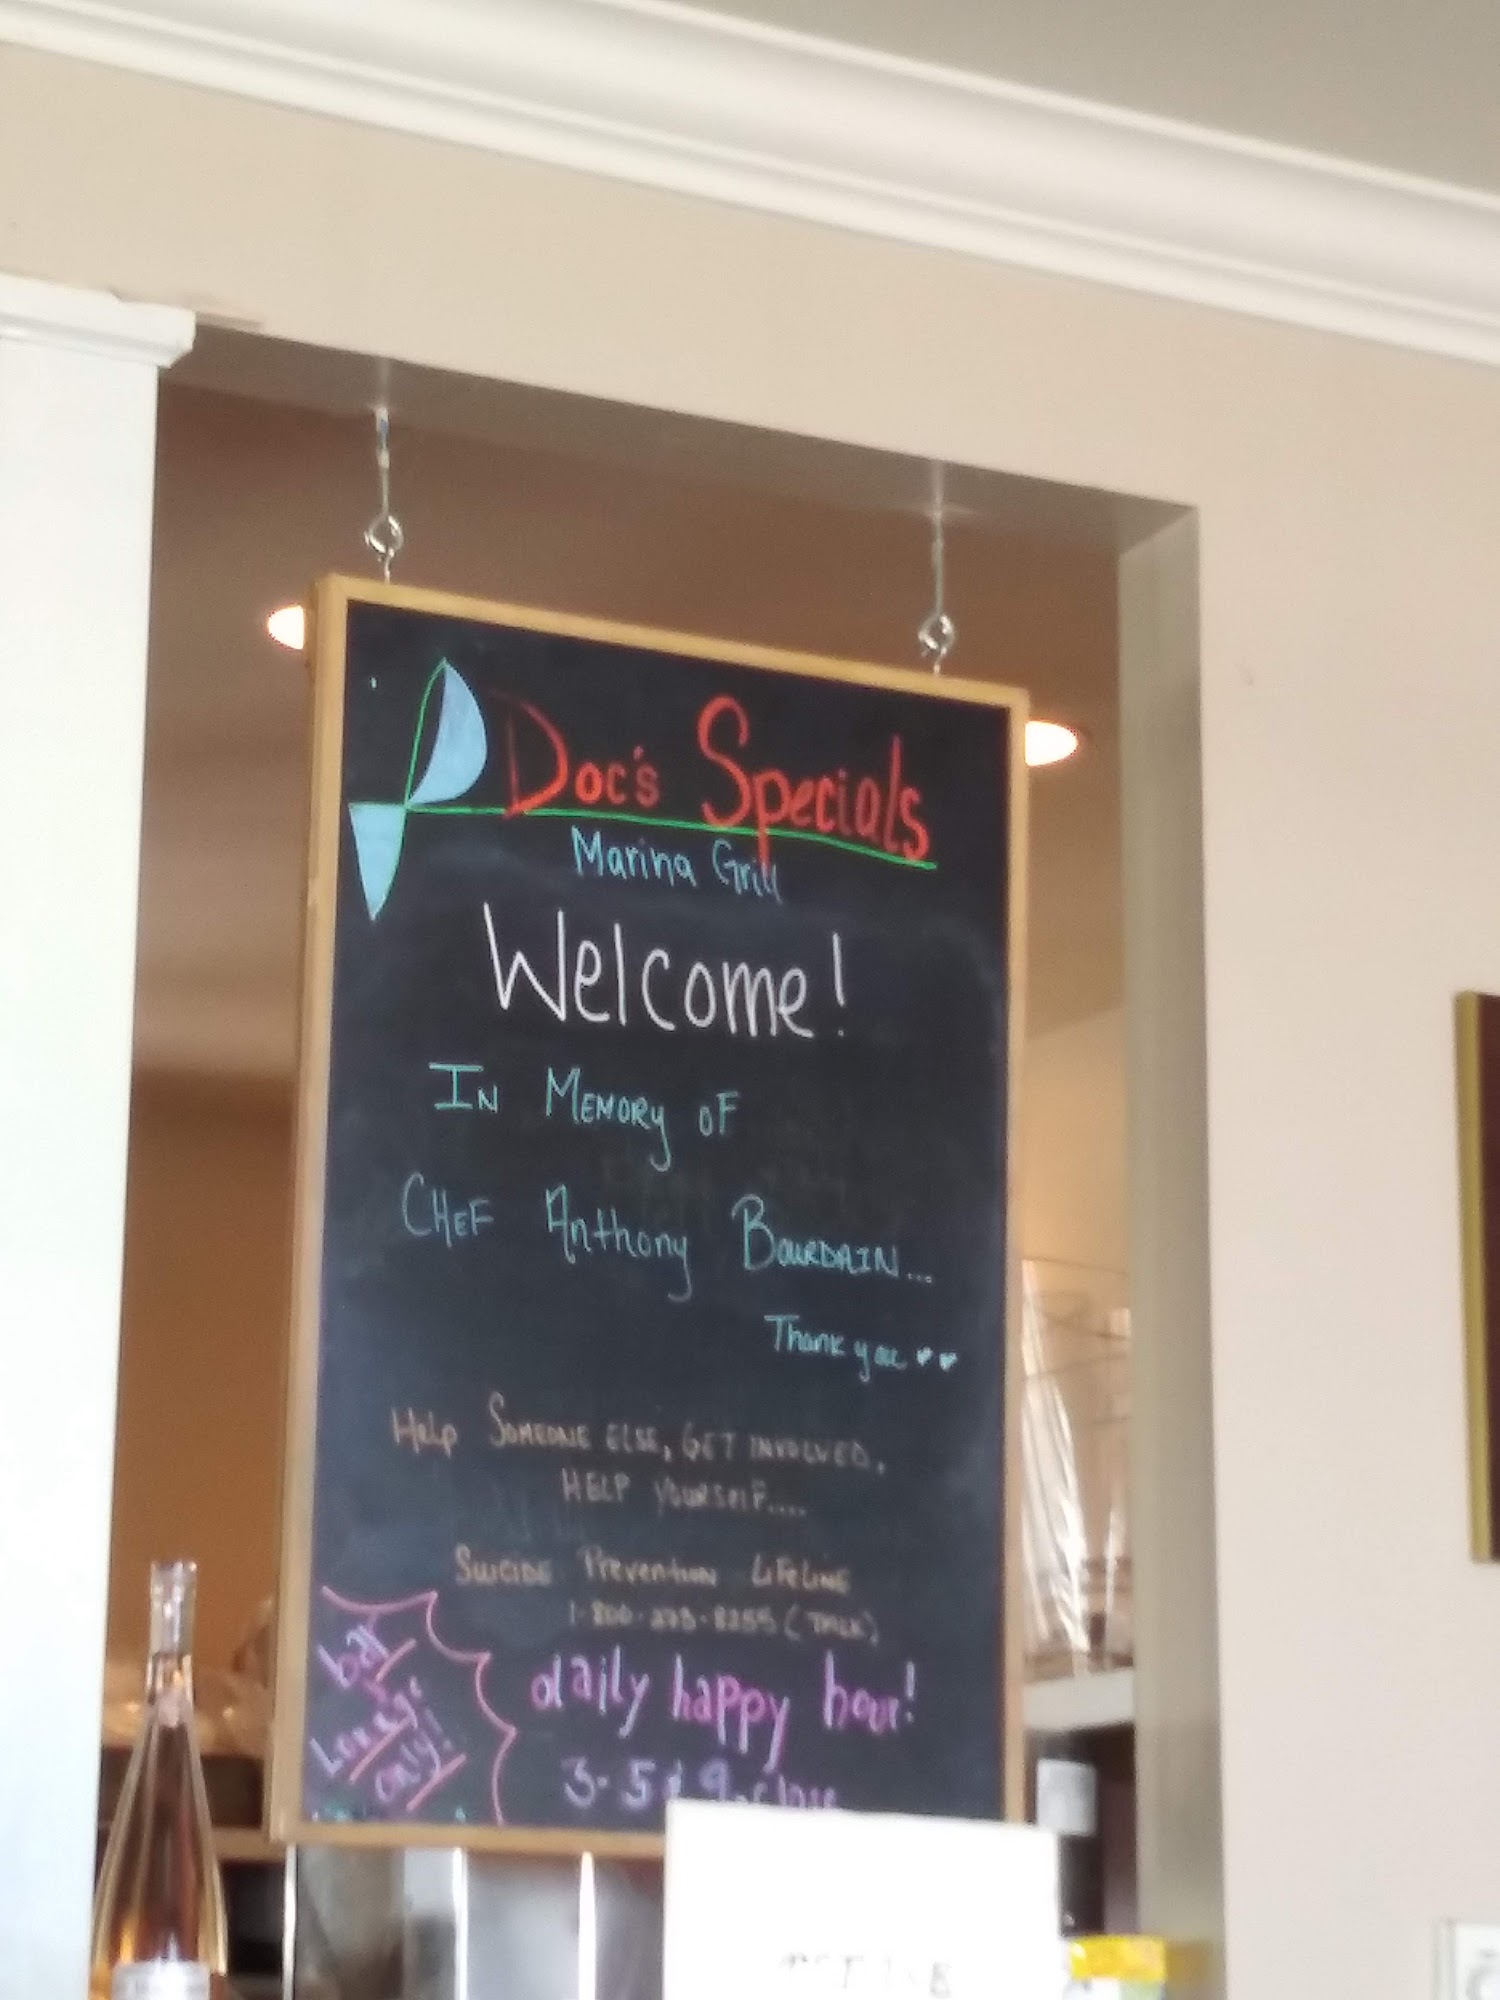 Doc's Specials
Marina Grill
Welcome!
IN MEMORY OF
CHEF Anthony BOURDAIN...
Thank you
Help SOMEONE ELSE, GET INVOLVED,
HELP YOURSELF....
SUICIDE Prevention LIFELINE
1-800-273-8255 (TALK)
bar
Lounge
only!
daily happy hour!
3-5 & 9-close